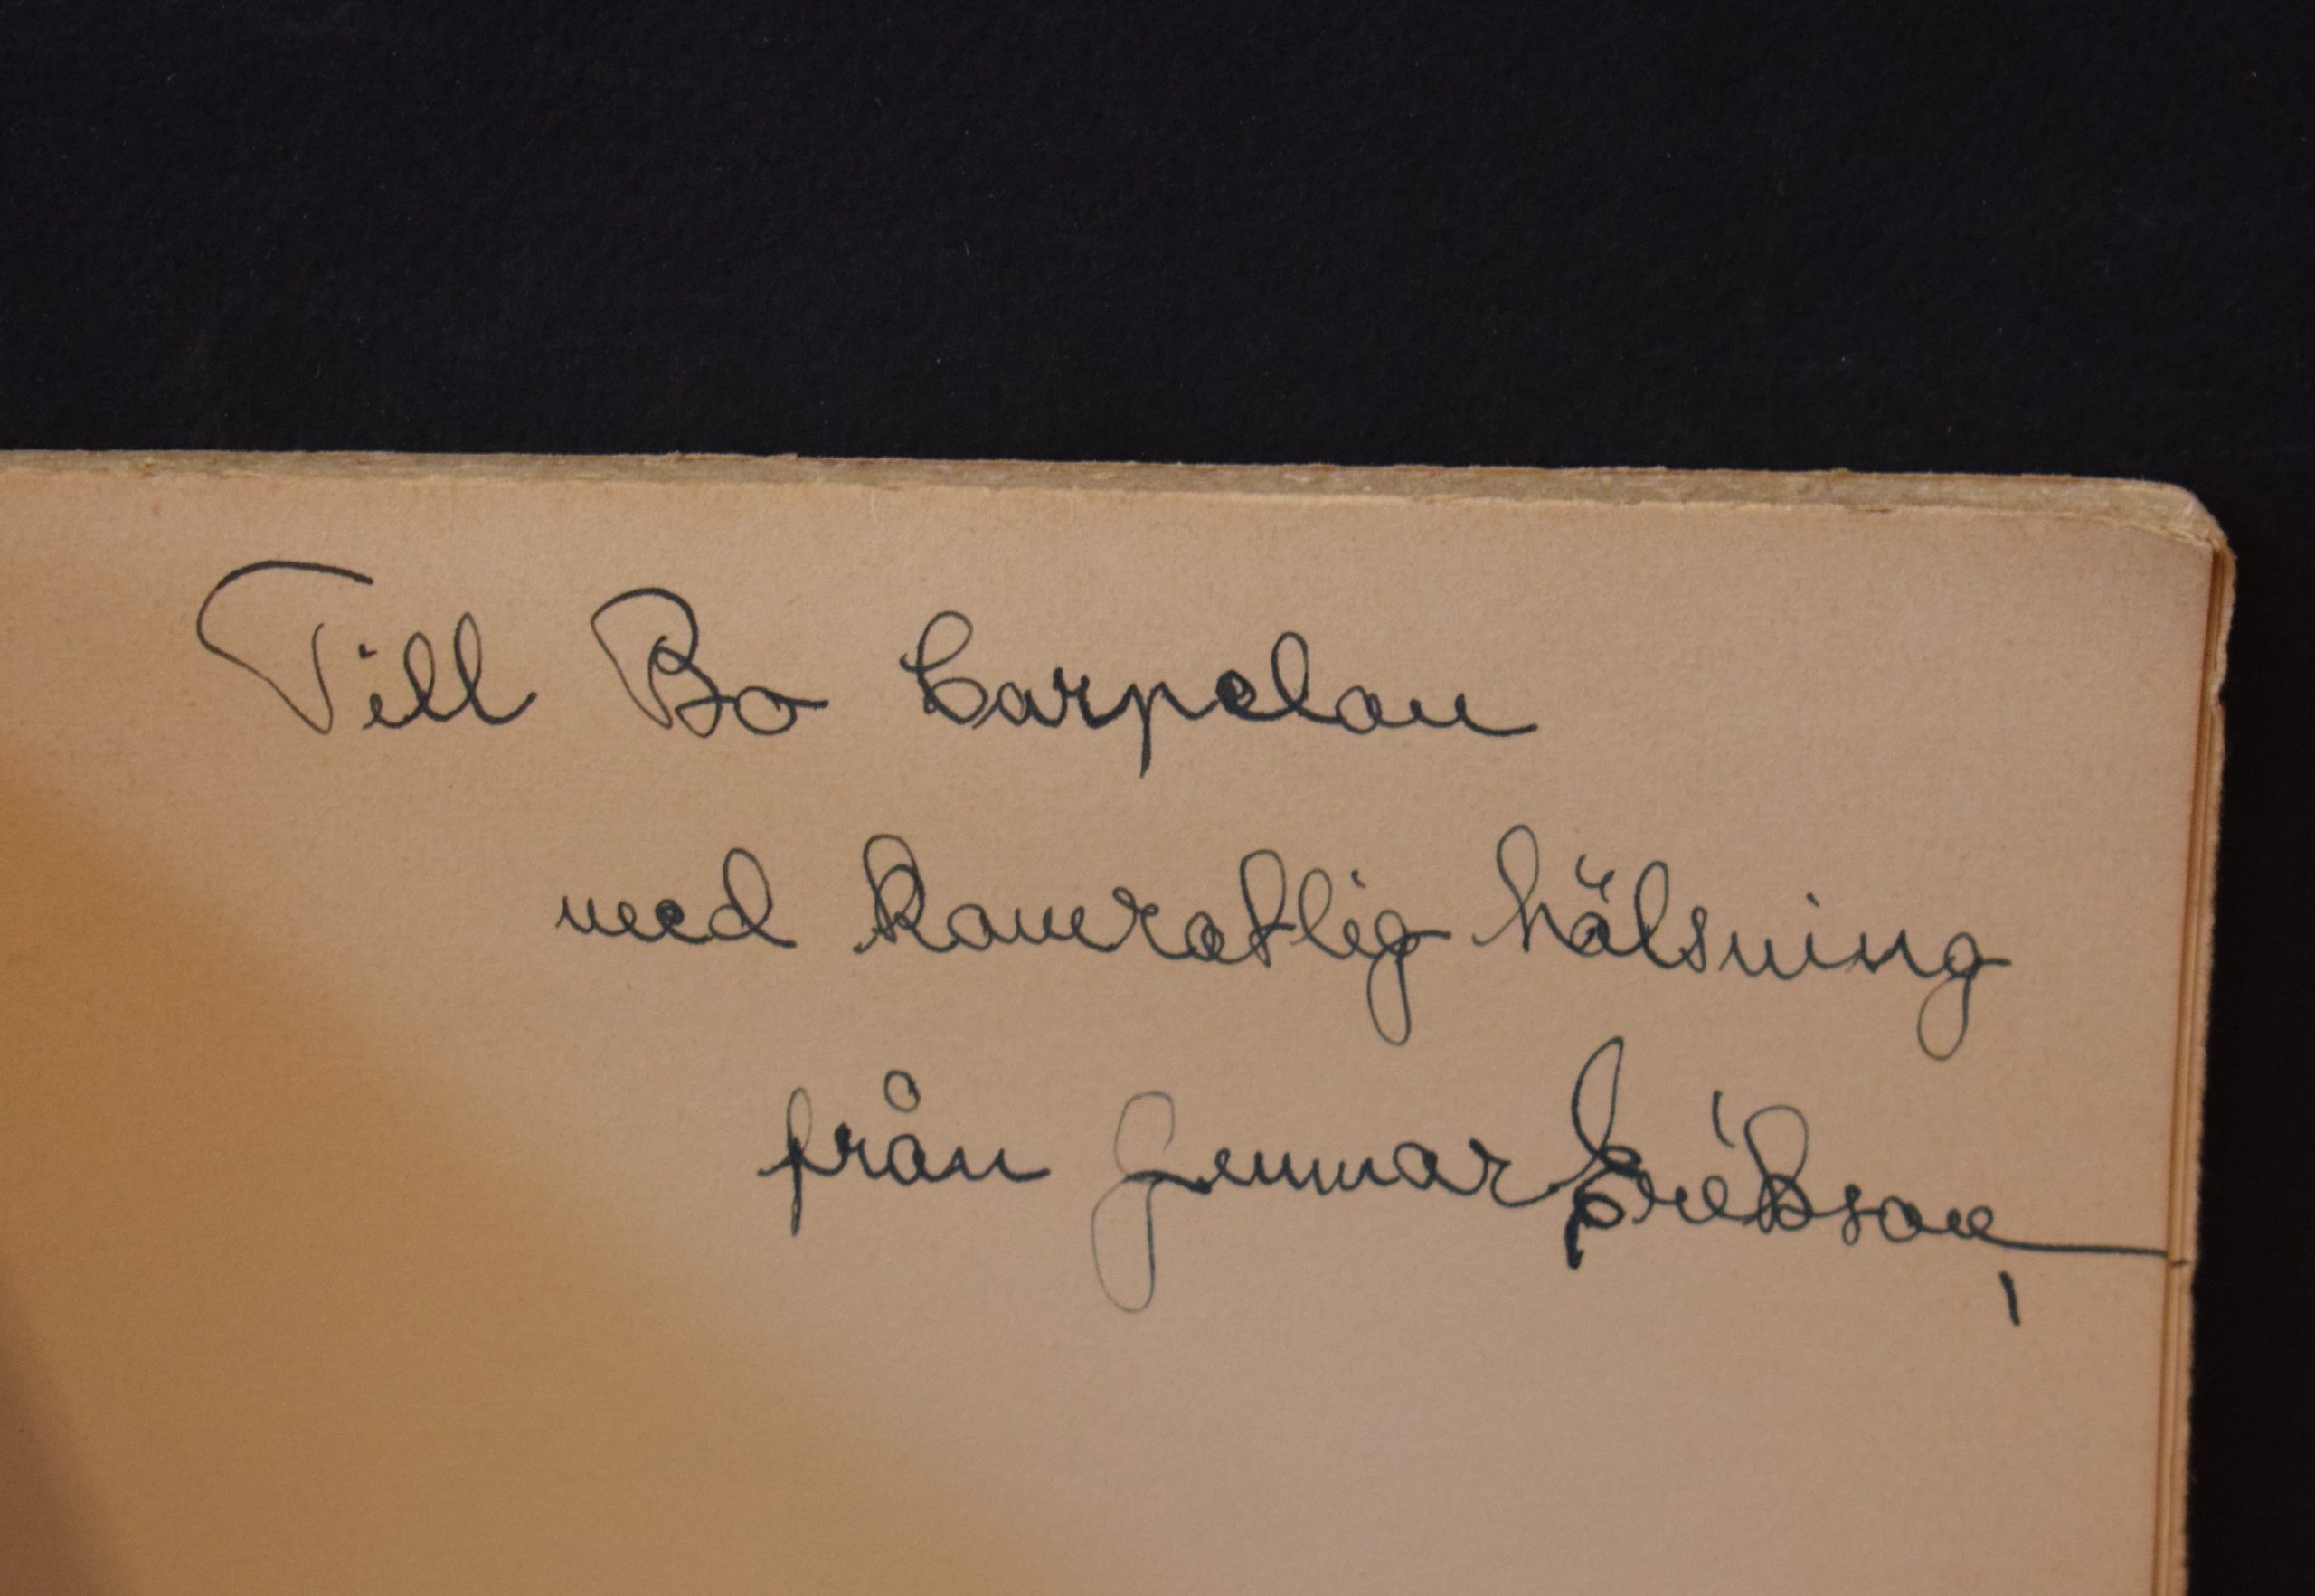 Till Bo Carpelan
med kamratlig hälsning
från Gunnar Erikson